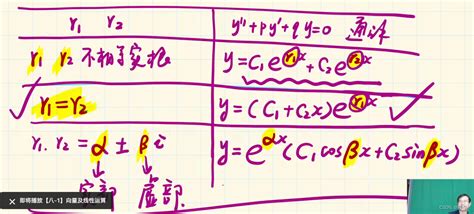 r₁ r₂ y''+py'+qy=0 通泽
r₁ r₂ 不相等实根 y=C₁e^{r₁x}+C₂e^{r₂x}
r₁=r₂ y=(C₁+C₂x)e^{r₁x}
r₁.r₂=α±βi y=e^{αx}(C₁cosβx+C₂sinβx)
实部 虚部
即将播放【八-1】向量及线性运算